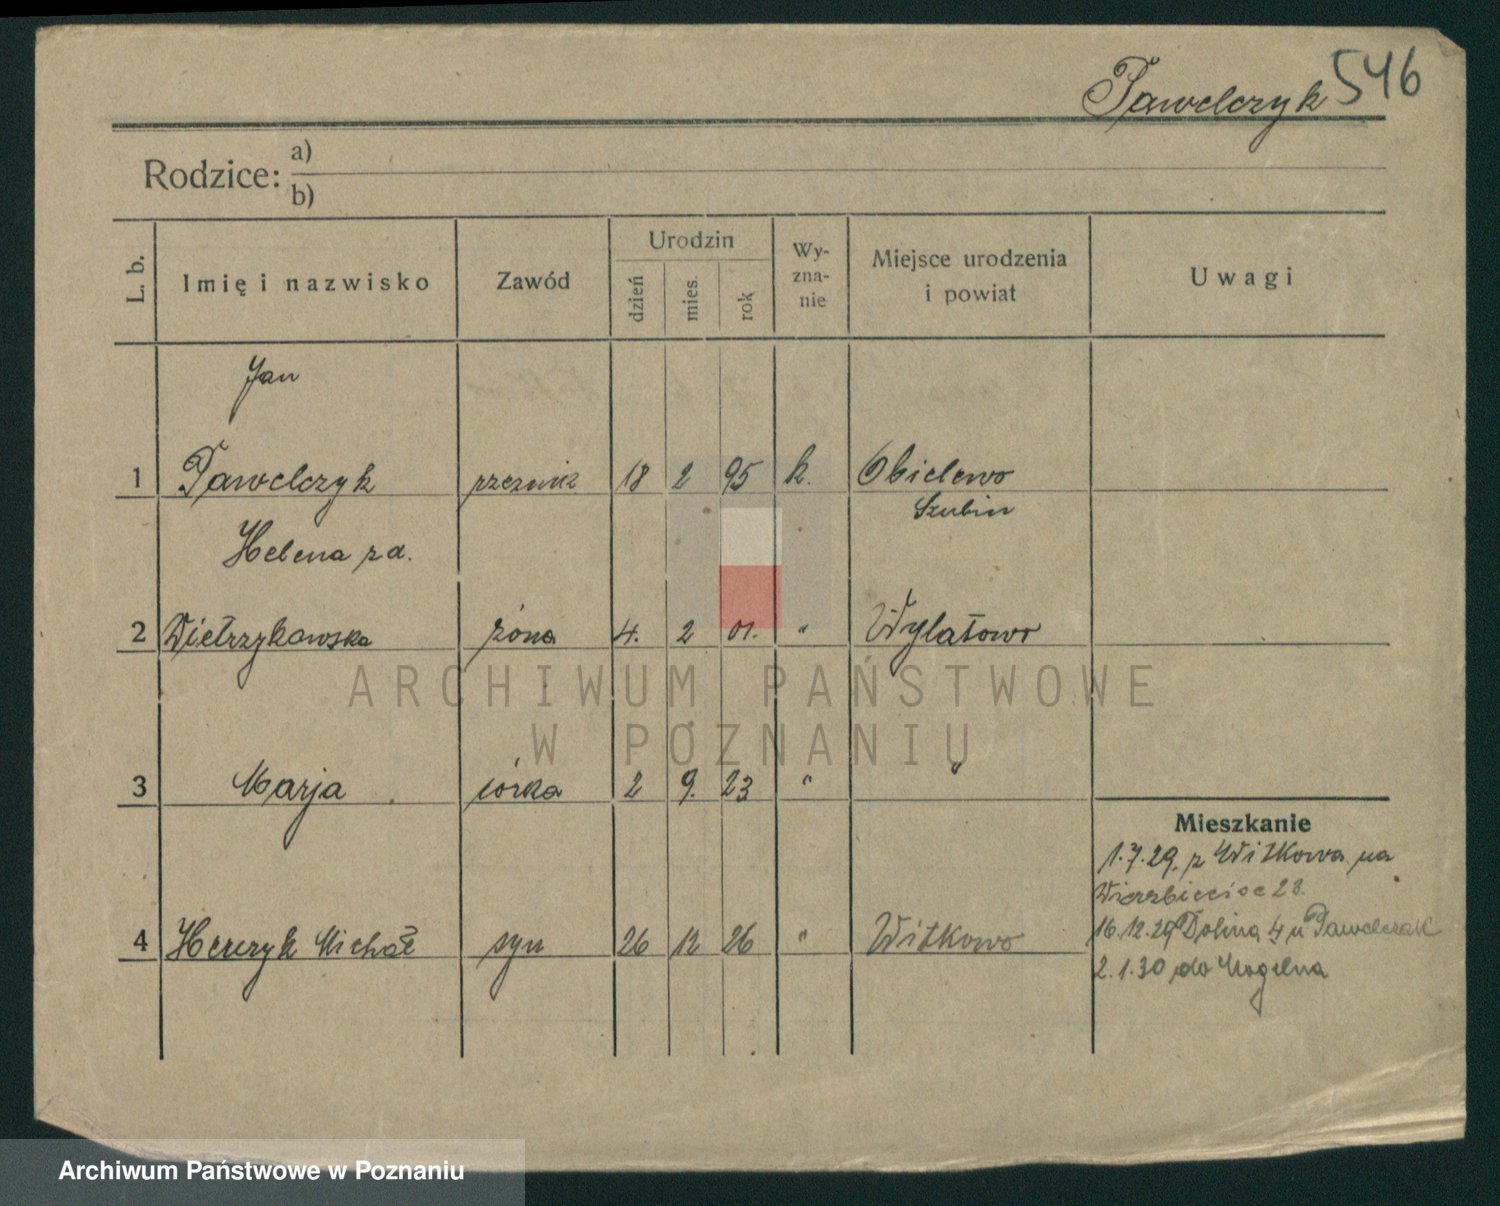 Pawelczyk 546
Rodzice: a)
b)
L. b. Imię i nazwisko Zawód Urodzin dzień mies. rok Wy-zna-nie Miejsce urodzenia i powiat Uwagi
Jan
1 Pawelczyk rzeznik 18 2 95 k. Obielewo
Szubin
Helena z d.
2 Wietrzykowska żona 4. 2 01. " Wylatowo
ARCHIWUM PAŃSTWOWE
W POZNANIU
3 Marja córka 2 9. 23 " "
Mieszkanie
1.7.29. z Witkowa na
Wierzbięcice 28.
16.12.29 Dolina 4 u Pawelczak
4 Michał syn 26 12 26 " Witkowo
2.1.30 do Mogilna
Archiwum Państwowe w Poznaniu